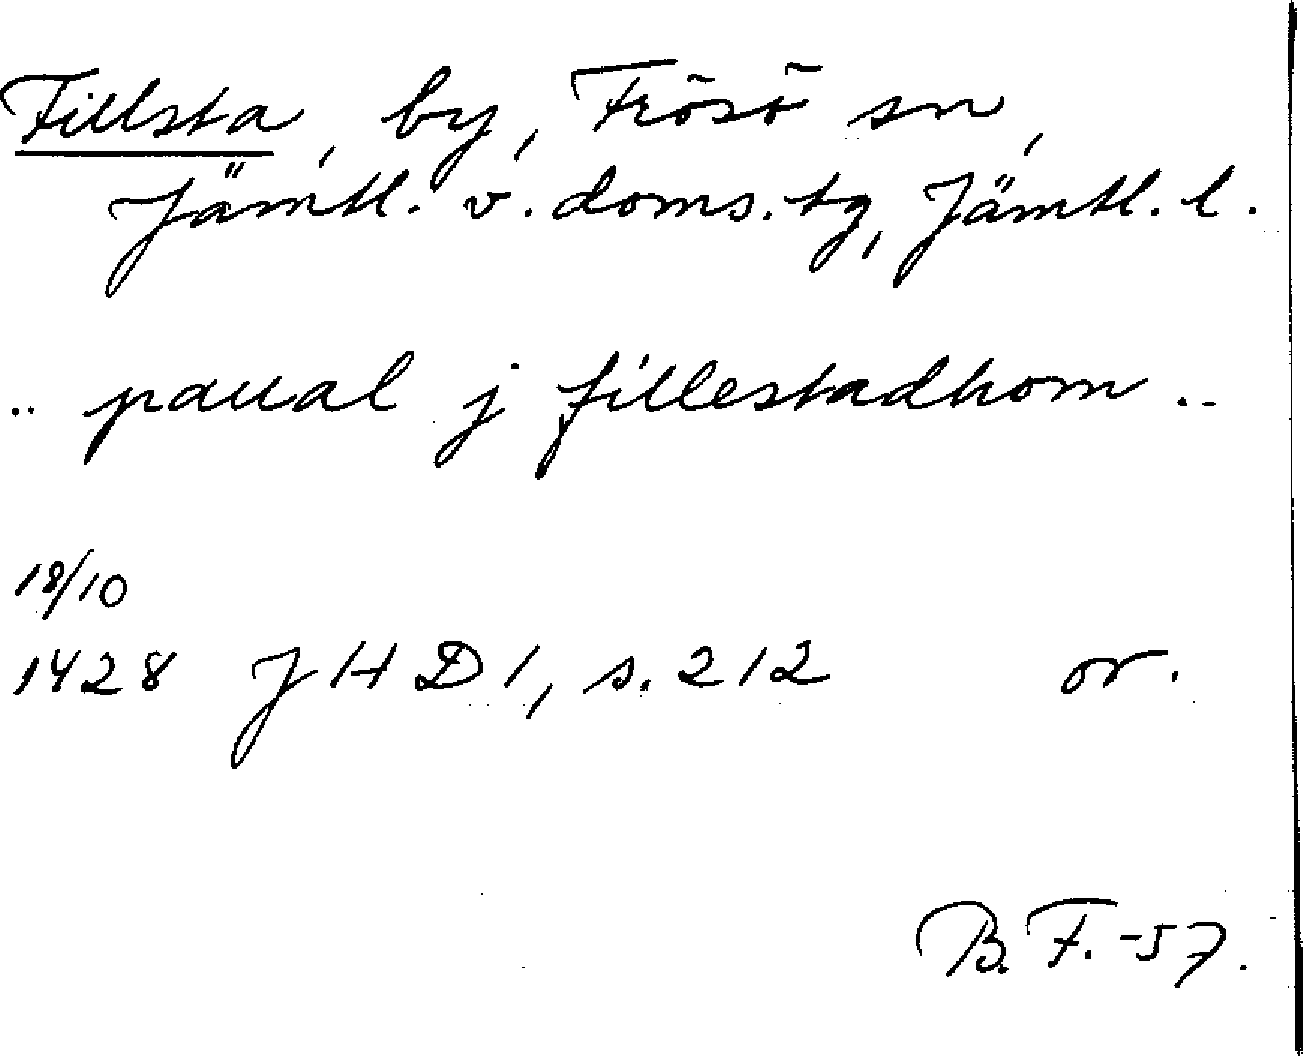 Fillsta, by, Frösö sn,
Jämtl. v. doms. tg, Jämtl. l.
.. paual j fillestadhom ..
18/10
1428 JHD 1, s. 212 or.
B. F. -57.